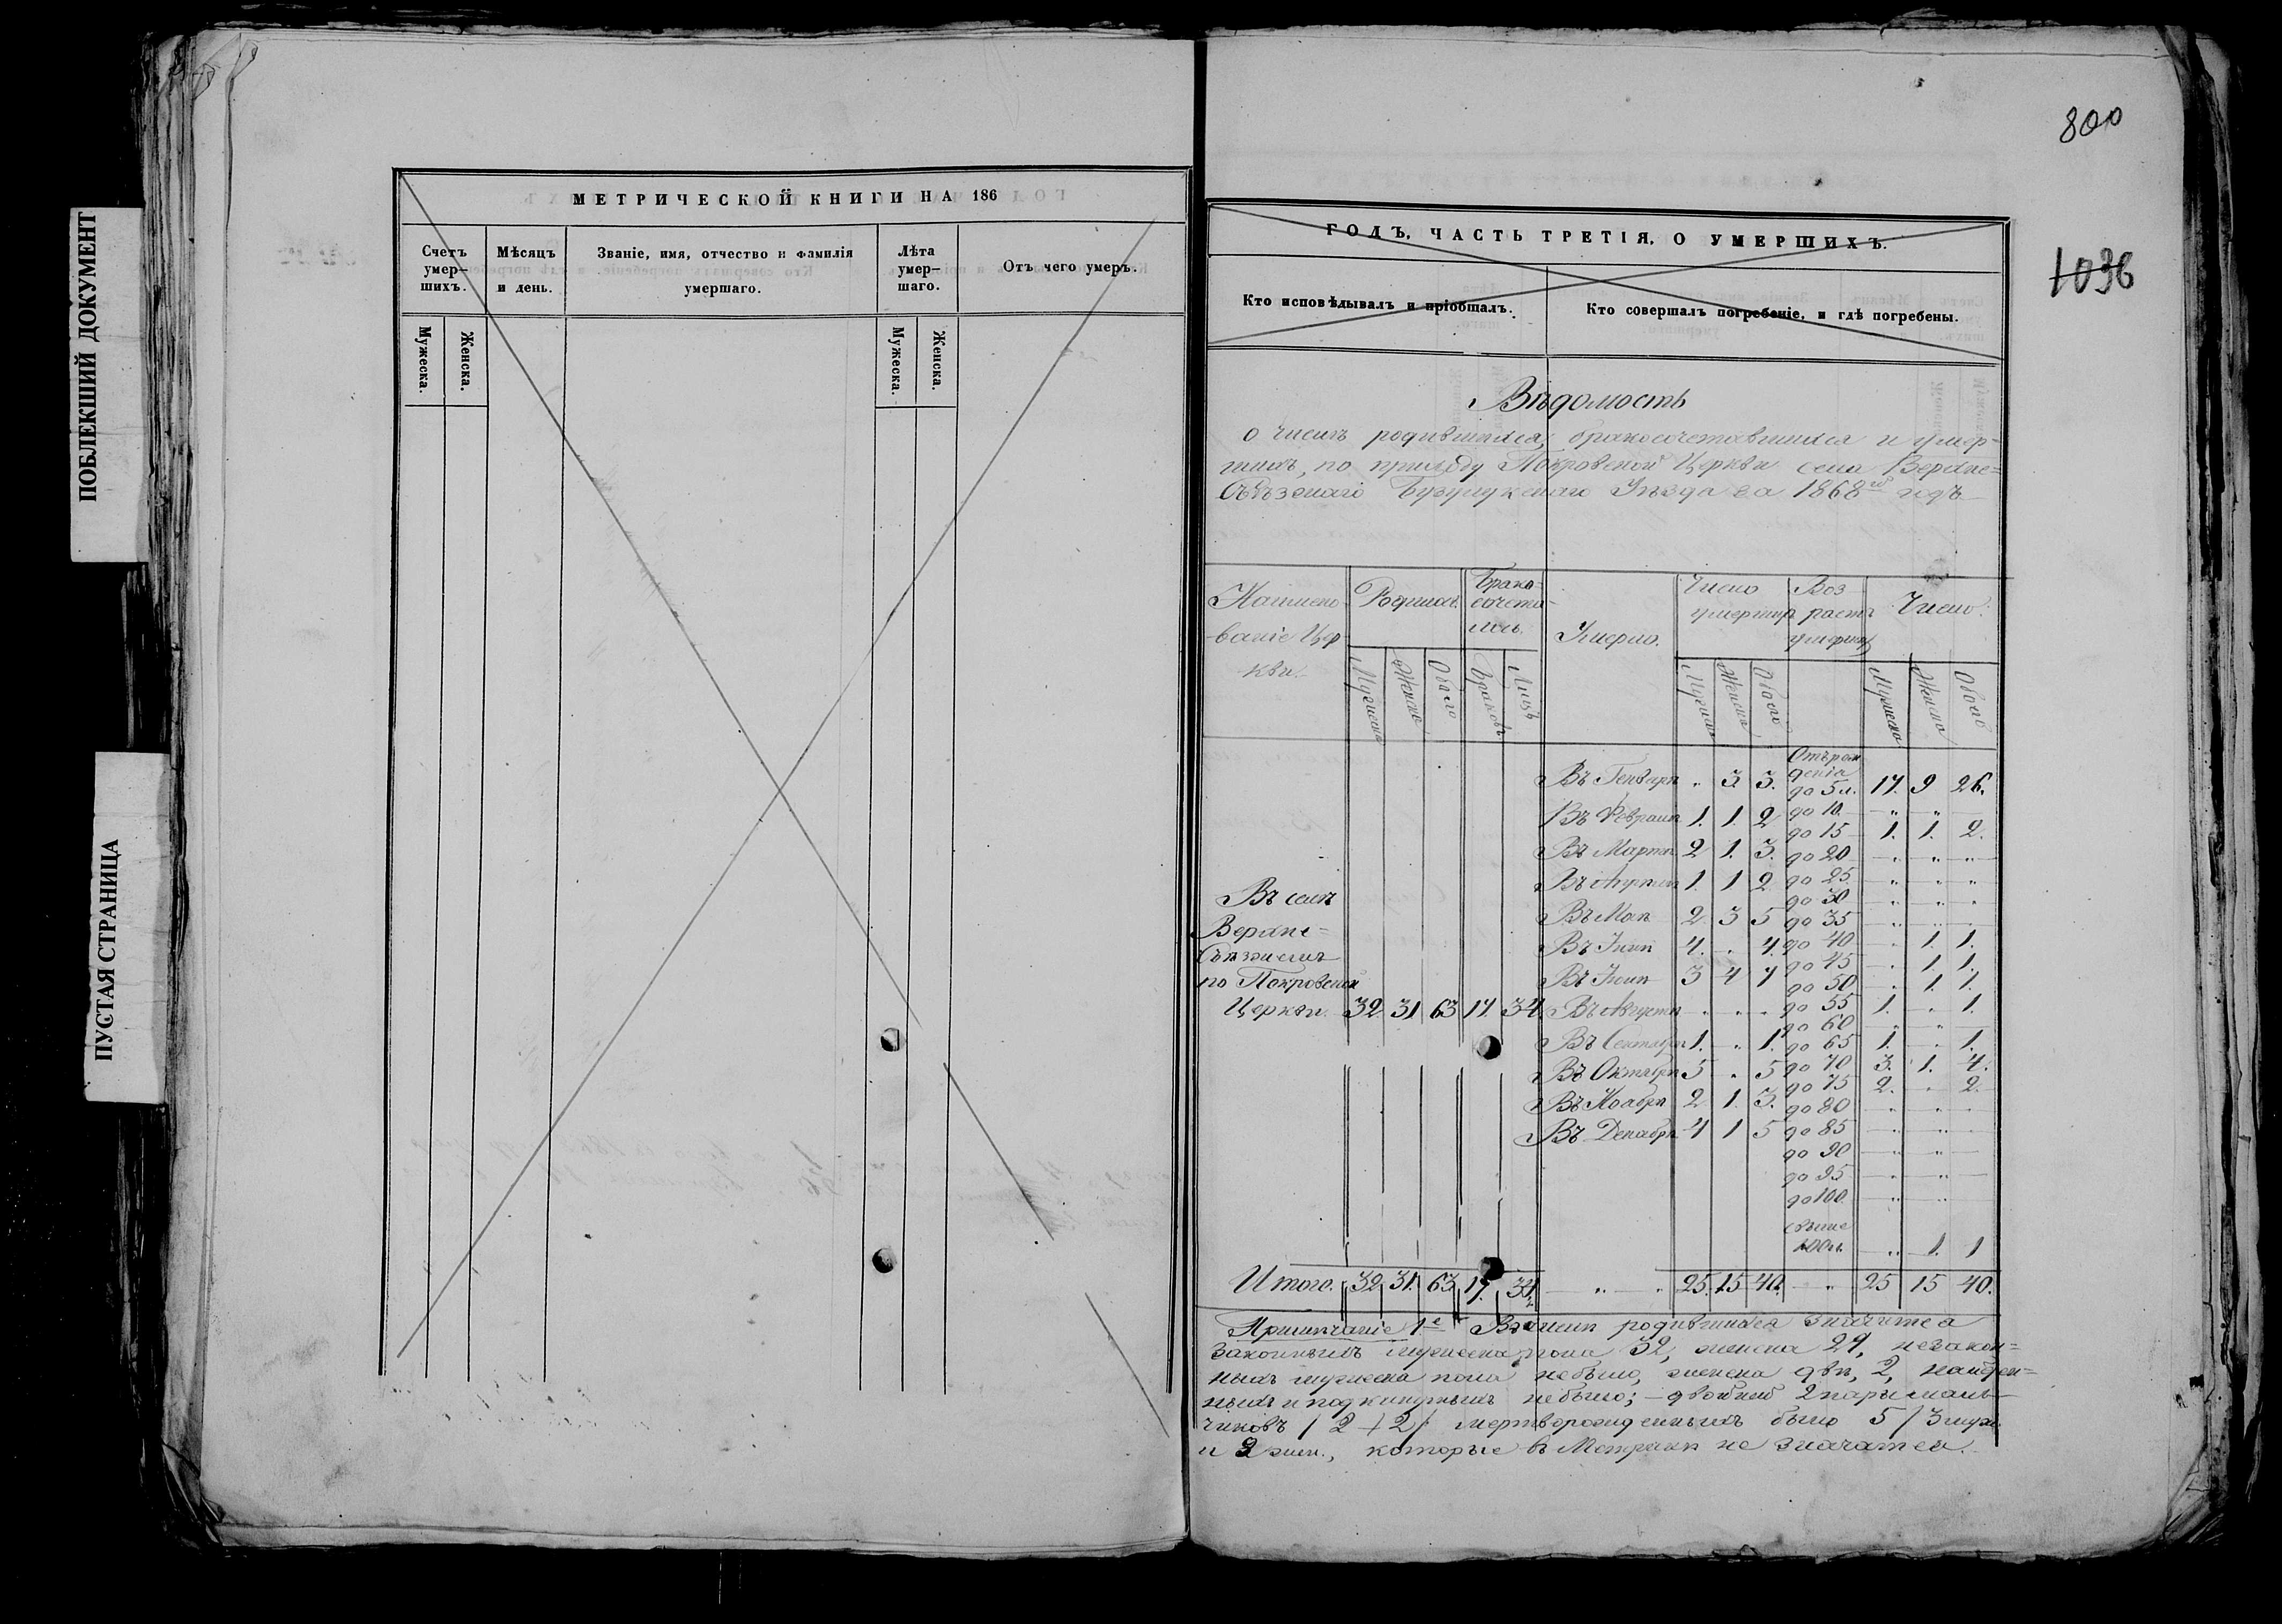 ПОБЛЕКШИЙ ДОКУМЕНТ
ПУСТАЯ СТРАНИЦА
МЕТРИЧЕСКОЙ КНИГИ НА 186
Счетъ умер-шихъ.
Мѣсяцъ и день.
Званіе, имя, отчество и фамилія умершаго.
Лѣта умер-шаго.
Отъ чего умеръ.
Мужеска.
Женска.
Мужеска.
Женска.
800
1036
ГОДЪ, ЧАСТЬ ТРЕТІЯ, О УМЕРШИХЪ.
Кто исповѣдывалъ и пріобщалъ.
Кто совершалъ погребеніе, и гдѣ погребены.
Вѣдомость
о числѣ родившихся, бракосочетавшихся и умер-
шихъ, по приходу Покровской Церкви села Верхне=
Съѣзжаго Бузулукскаго Уѣзда за 1868й годъ
Наимено-
ваніе Цр-
кви.
Родилось.
Брако=
сочета-
лось.
Умерло.
Число
умершихъ
Воз
растъ
умершихъ
Число.
Мужеска Женска Обоего Браковъ Лицъ Мужеска Женска Обоего Мужеска Женска Обоего
Въ Генварѣ „ 3 3. Отъ рож
денія
до 5 л. 17. 9 26.
Въ Февралѣ 1. 1. 2 до 10. „ „
до 15 1. 1. 2.
Въ Мартѣ 2 1. 3. до 20 „ „ „
Въ Апрѣлѣ 1. 1 2 до 25 „ „ „
до 30 „ „ „
Въ Маѣ 2 3 5 до 35 „ „
Въ Іюнѣ 4. „ 4. до 40 „ 1. 1.
до 45 „ 1. 1.
Въ Іюлѣ 3 4 7 до 50 „ 1. 1.
Въ селѣ
Верхне=
Съѣзжемъ
по Покровской
Церкви. 32 31 63 17. 34 Въ Августѣ „ „ „ до 55 1. „ 1.
до 60 „ „
Въ Сентябрѣ 1. „ 1. до 65 1. „ 1.
Въ Октябрѣ 5 „ 5 до 70 3. 1. 4.
до 75 2. „ 2.
Въ Ноябрѣ 2 1. 3. до 80 „ „ „
Въ Декабрѣ 4 1 5 до 85 „ „
до 90 „ „
до 95 „ „
до 100. „ „
свыше
100 л. „ 1. 1
Итого. 32 31. 63 17. 34 „ „ 25. 15 40. „ 25 15 40.
Примѣчаніе 1е Въ числѣ родившихся значится
законныхъ мужеска пола 32, женска 29, незакон=
ныхъ мужеска пола небыло, женска двѣ, 2, найден=
ныхъ и подкинутыхъ небыло; – двойней 2 пары маль-
чиковъ / 2 + 2/ мертворожденныхъ было 5 / 3 муж.
и 2 жен., которые въ Метрики не значатся.